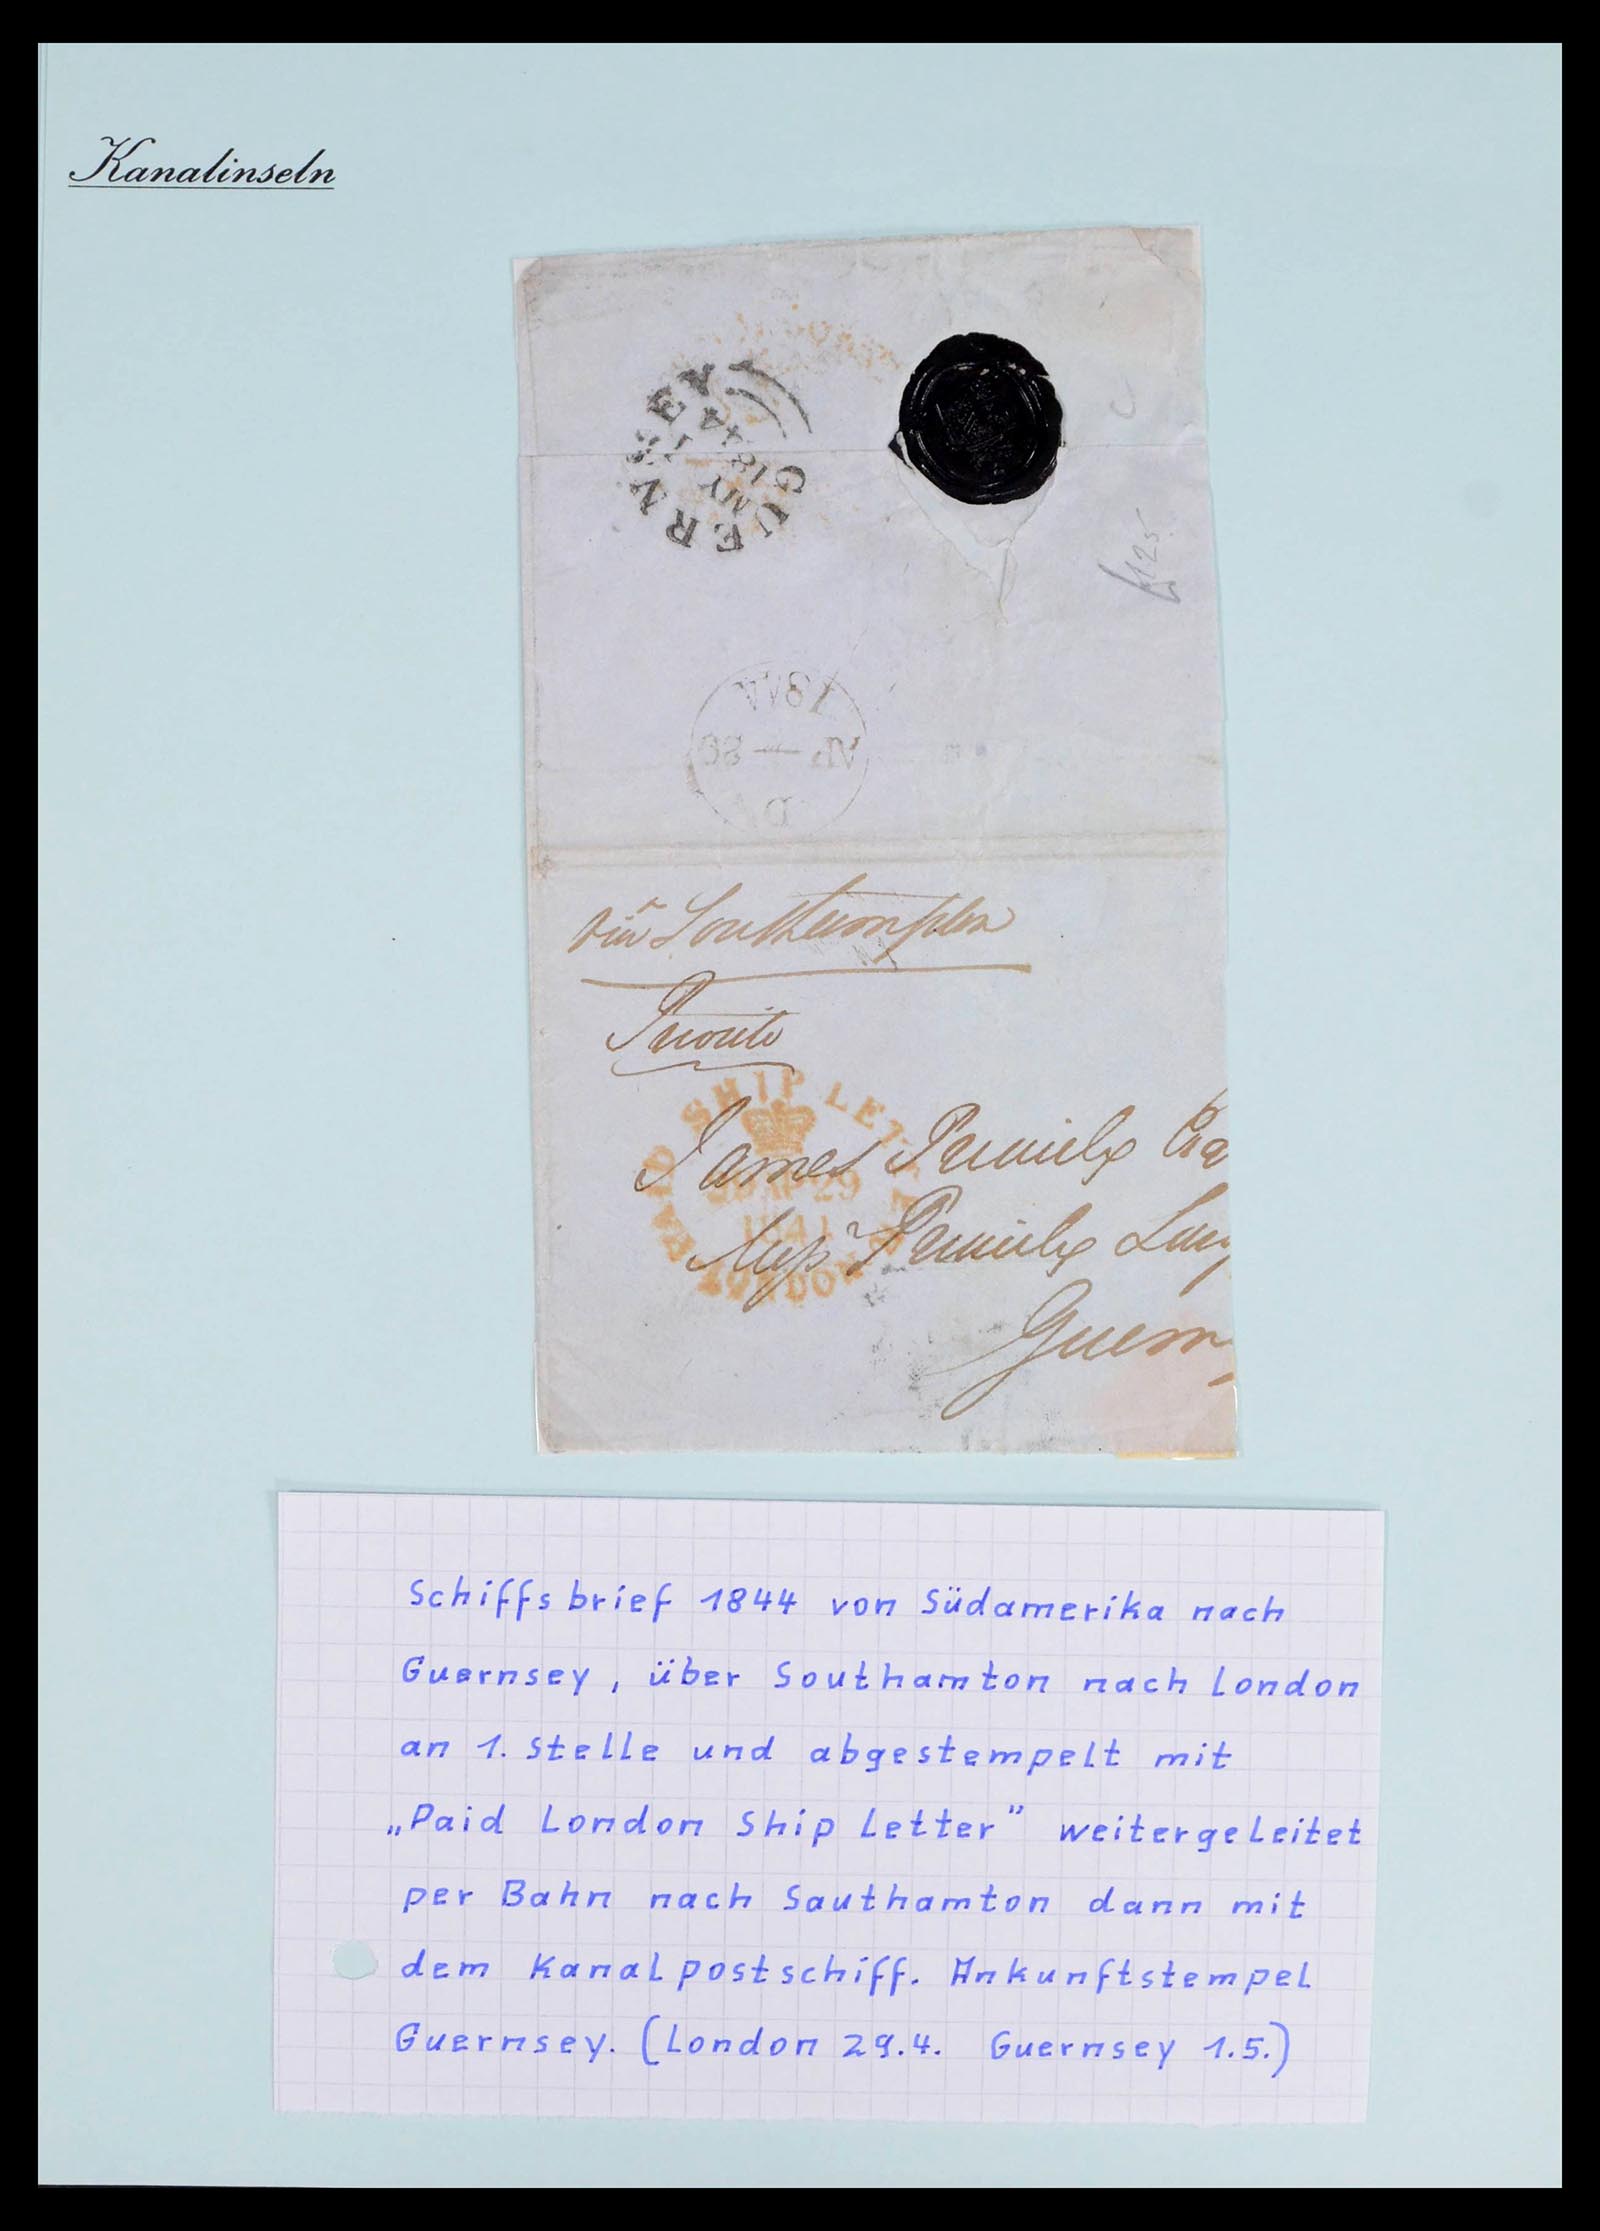 Kanalinseln
GUERNSEY
MY 1
1844
£125
via Southampton
Private
PAID SHIP LETTER LONDON
AP 29
184
James
Guern
Schiffsbrief 1844 von Südamerika nach
Guernsey, über Southamton nach London
an 1. Stelle und abgestempelt mit
„Paid London Ship Letter" weitergeleitet
per Bahn nach Sauthamton dann mit
dem Kanalpostschiff. Ankunftstempel
Guernsey. (London 29.4. Guernsey 1.5.)